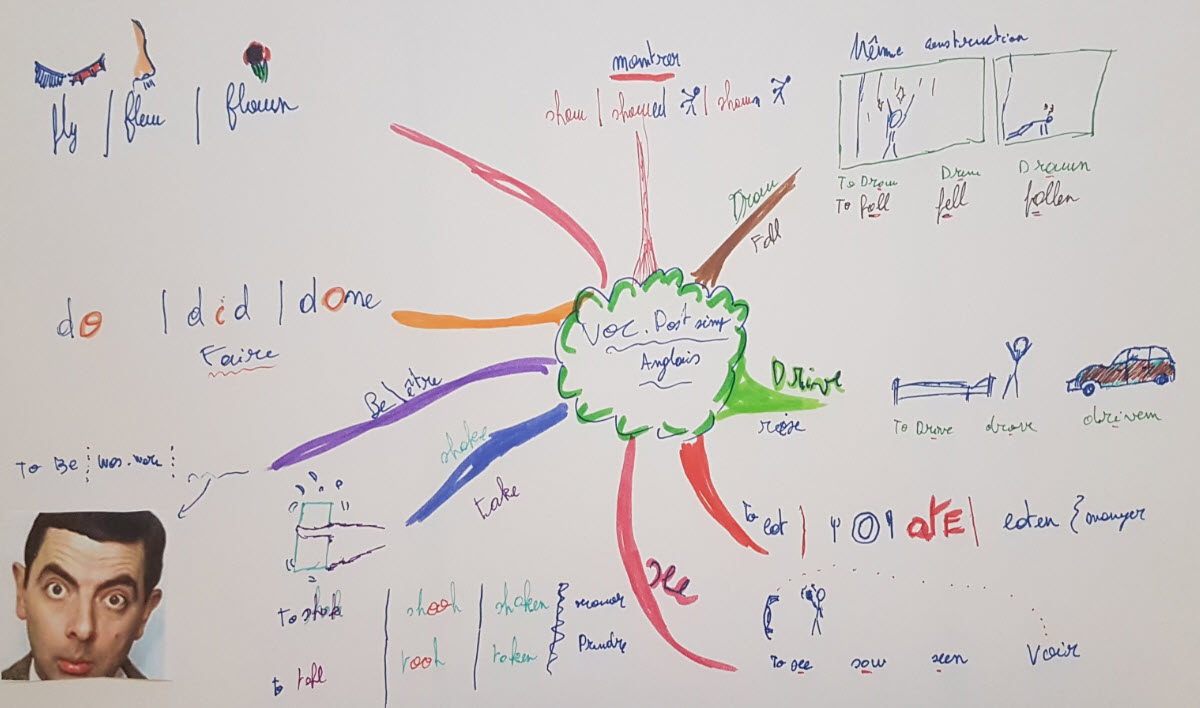 fly | flew | flown
montrer
show | showed | shown
Même construction
To Draw Drew Drawn
To fall fell fallen
Draw
Fall
do | did | done
Faire
VOC. Past simp
Anglais
Be être
To Be was. were
shake
take
Drive
rise
To Drove drove driven
To eat | atE | eaten { manger
see
To shake | shook | shaken
to take | took | taken Prendre
To see saw seen Voir